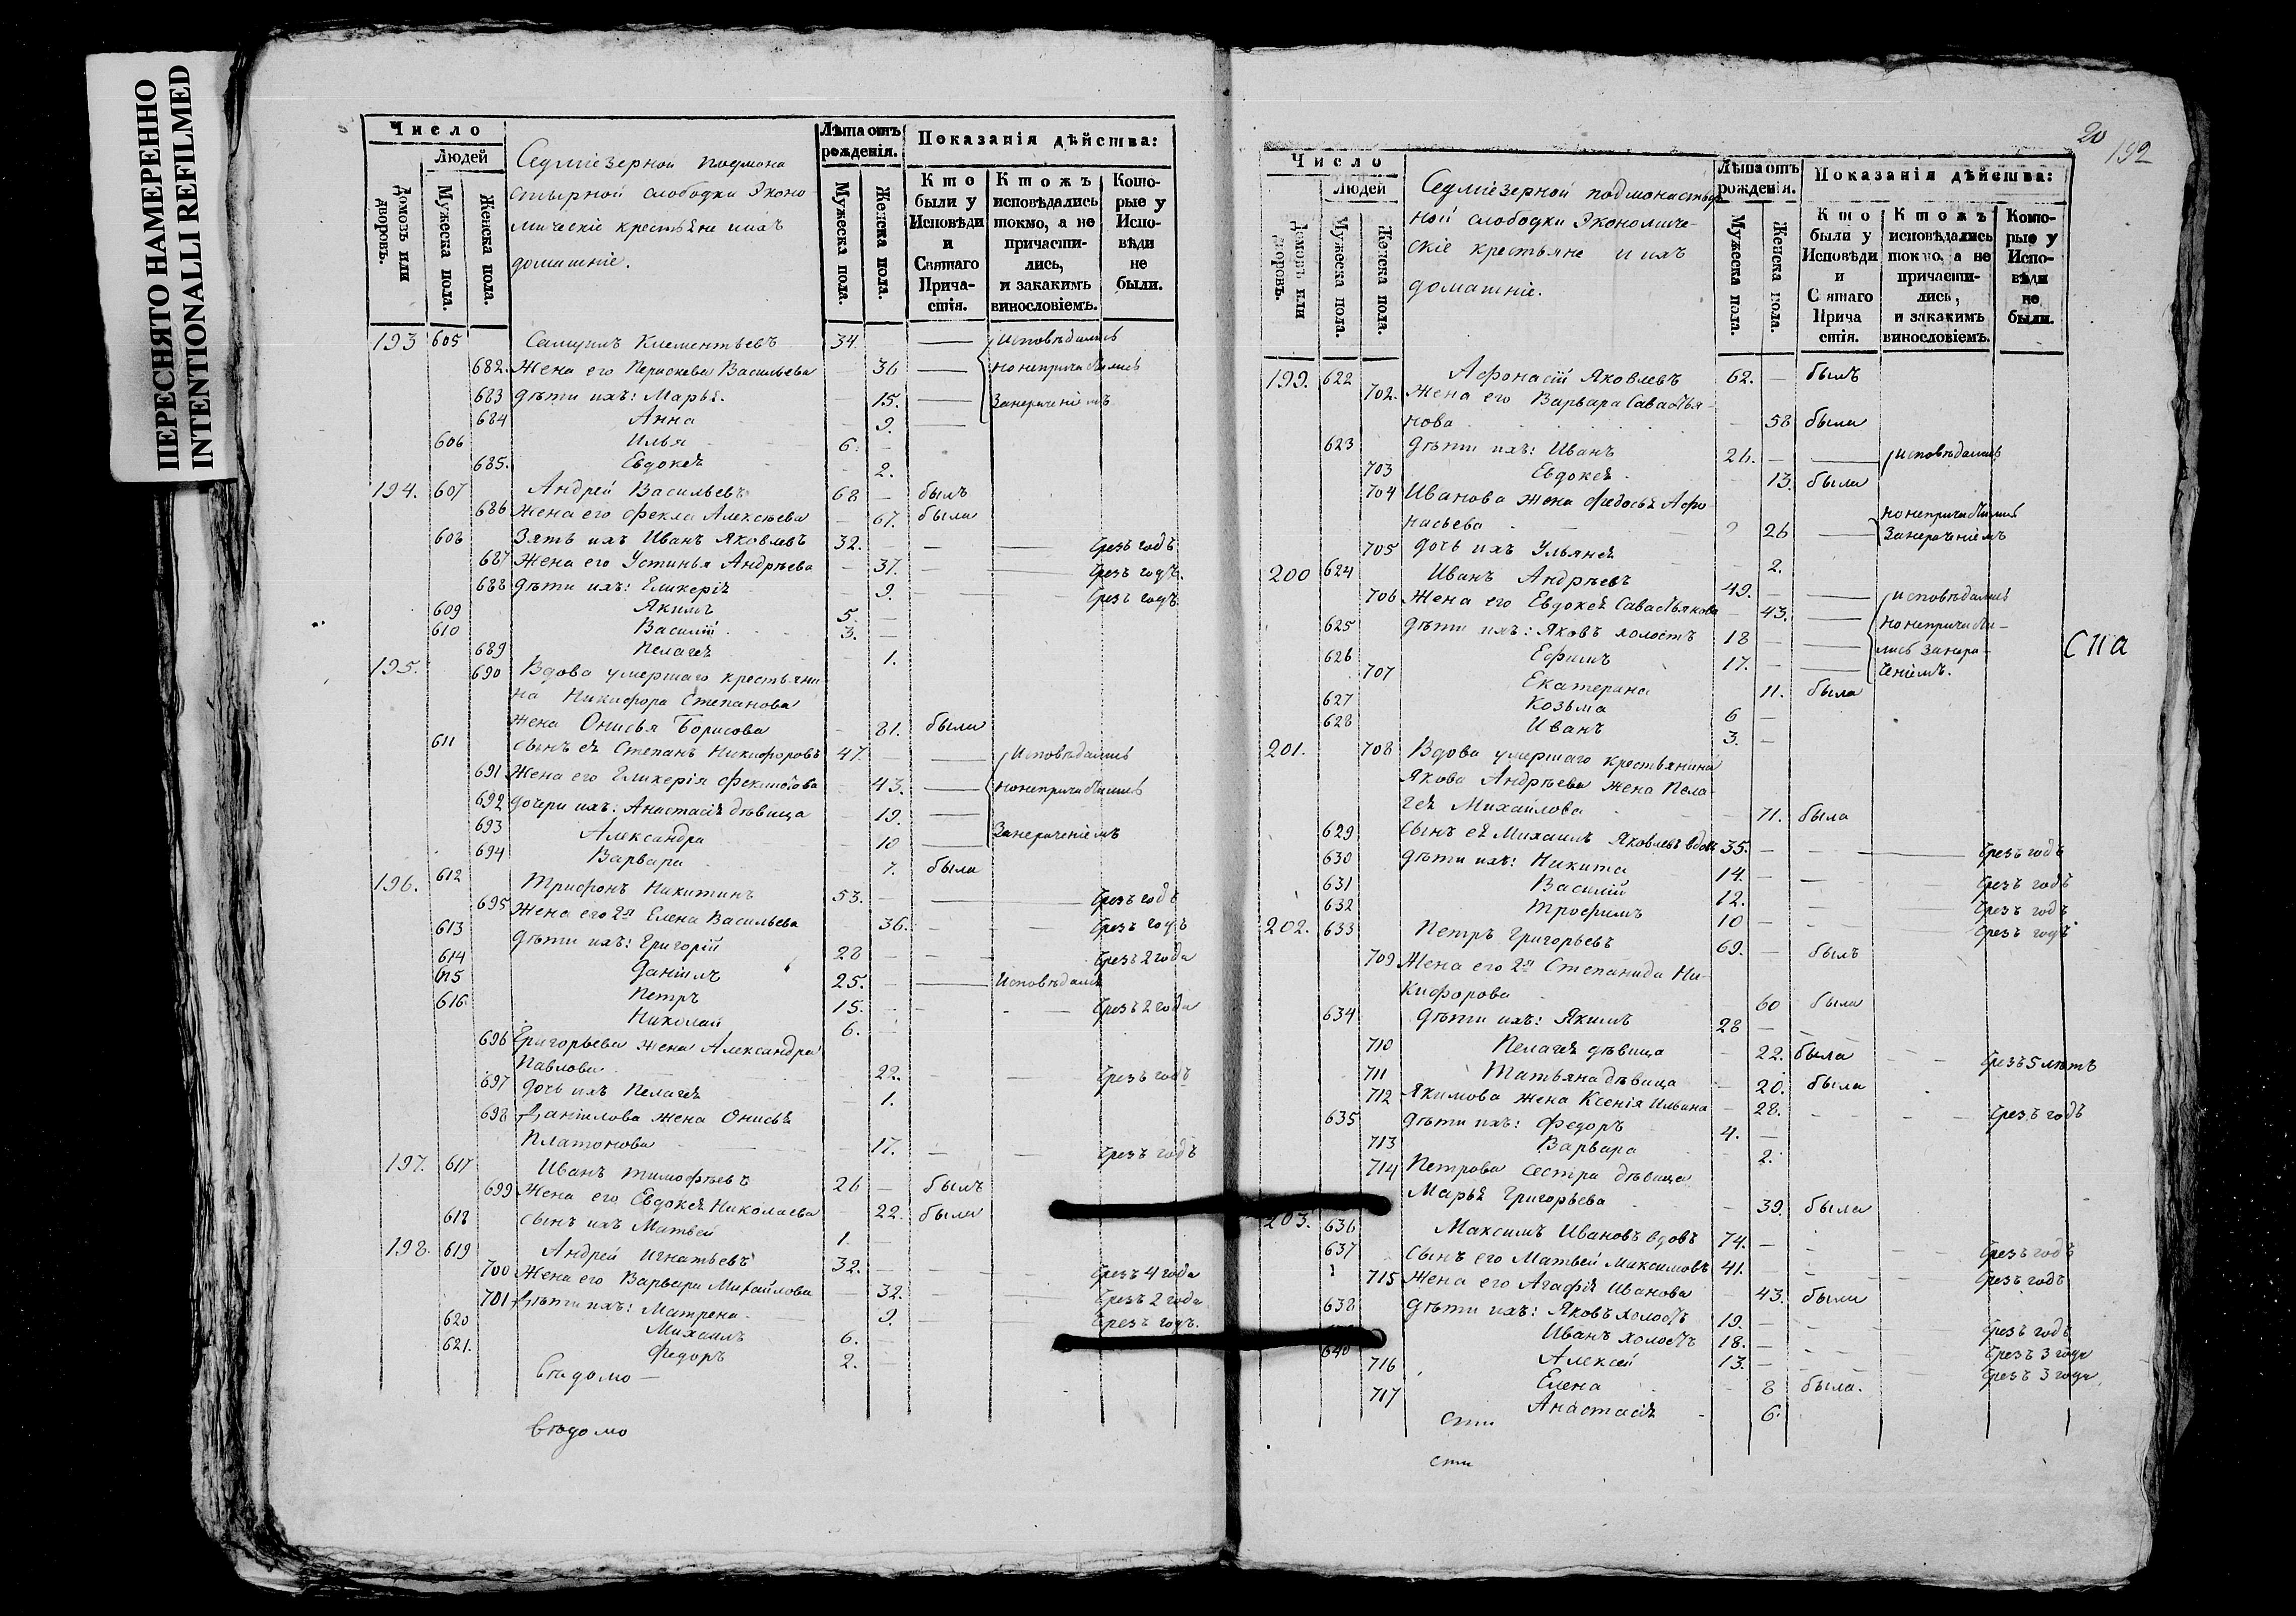 ПЕРЕСНЯТО НАМЕРЕННО
INTENTIONALLI REFILMED
Число
Людей
Домовъ или дворовъ.
Мужеска пола.
Женска пола.
Седміезерной подмона
стырной слободки Эконо
мическіе крестьяне и ихъ
домашніе.
Лѣта отъ рожденія.
Мужеска пола.
Женска пола.
Показанія дѣйства:
Кто были у Исповѣди и Святаго Прича-стія.
Ктожъ исповѣдались токмо, а не причасти-лись, и закакимъ винословіемъ.
Кото-рые у Испо-вѣди не были.
193 605 Самуилъ Клементьевъ 34. — Исповѣдались
682. Жена его Парасковья Васильева 36 — но непричастились
683 дѣти ихъ: Марья. 15. — Занерачениемъ
684 Анна 9. —
606 Илья 6. —
685. Евдокея 2.
194. 607 Андрей Васильевъ 68 — былъ
686 Жена его Фекла Алексѣева 67. была
608 Зять ихъ Иванъ Яковлевъ 32. — — Чрезъ годъ
687 Жена его Устинья Андрѣева 37. — — Чрезъ годъ.
688 дѣти ихъ: Гликерія 9. — — Чрезъ годъ
609 Якимъ 5. —
610 Василій 3. —
689 Пелагея 1.
195. 690 Вдова умершаго крестьяни
на Никифора Степанова
жена Онисья Борисова 81. была
611 сынъ ея Степанъ Никифоровъ 47. — — Исповѣдались
691 Жена его Гликерія 43. — но непричастились
692 дочери ихъ: Анастасія дѣвица 19. —
693 Александра 10 — Занераченіемъ
694 Варвара 7. была
196. 612 Трифонъ Никитинъ 53. — — Чрезъ годъ
695 Жена его 2я Елена Васильева 36. — — Чрезъ годъ
613 дѣти ихъ: Григорій 28 — — Чрезъ 2 года
614 Даніилъ 25. — — Исповѣдался
615 Петръ 15. — — Чрезъ 2 года
616 Николай 6. —
696 Григорьева жена Александра
Павлова 22. — — Чрезъ годъ
697 дочь ихъ Пелагея 1.
698 Данілова жена Онисья
Платонова 17. — — Чрезъ годъ
197. 617 Иванъ Тимофѣевъ 26 — былъ
699 Жена его Евдокея Николаева 22. была
618 сынъ ихъ Матвей 1. —
198. 619 Андрей Игнатьевъ 32. — — Чрезъ 4 года
700 Жена его Варвара Михайлова 32. — — Чрезъ 2 года
701 Дѣти ихъ: Матрена 9. — — Чрезъ годъ.
620 Михаилъ 6. —
621. Федоръ 2. —
Вѣдомо —
Вѣдомо
20
192
Число
Людей
Домовъ или дворовъ.
Мужеска пола.
Женска пола.
Седміезерной подмонастыр
ной слободки Экономиче-
скіе крестьяне и ихъ
домашніе.
Лѣта отъ рожденія.
Мужеска пола.
Женска пола.
Показанія дѣйства:
Кто были у Исповѣди и Святаго Прича стія.
Ктожъ исповѣдались токмо, а не причасти-лись, и закакимъ винословіемъ.
Кото-рые у Испо-вѣди не были.
199. 622 Афонасій Яковлевъ 62. — былъ
702. Жена его Варвара Савастья-
нова 58 была
623 дѣти ихъ: Иванъ 26. — — Исповѣдались
703 Евдокея 13. была
704 Иванова жена Федосья Афо
насьева 26 — но непричастились Занераченіемъ
705 дочь ихъ Ульяна 2.
200 624 Иванъ Андрѣевъ 49. — — исповѣдались
706 Жена его Евдокея Савастьянова 43. — но непричасти-
625 дѣти ихъ: Яковъ холостъ 18 — — лись Занера-
626 Ефимъ 17. — — ченіемъ.
707 Екатерина 11. была
627 Козьма 6 —
628 Иванъ 3. —
СПА
201. 708 Вдова умершаго крестьянина
Якова Андрѣева жена Пела-
гея Михайлова 71. была
629 сынъ ея Михаилъ Яковлевъ вдовъ 35. — — Чрезъ годъ
630 дѣти ихъ: Никита 14. — — Чрезъ годъ
631 Василій 12. — — Чрезъ годъ
632 Трофимъ 10 — — Чрезъ годъ.
202. 633 Петръ Григорьевъ 69. — былъ
709 Жена его 2я Степанида Ни-
кифорова 60 была
634 дѣти ихъ: Якимъ 28 — — Чрезъ 5 лѣтъ
710 Пелагея дѣвица 22. была
711 Татьяна дѣвица 20. была
712 Якимова жена Ксенія Ильина 28. — — Чрезъ годъ
635 дѣти ихъ: Федоръ 4. —
713 Варвара 2.
714 Петрова сестра дѣвица
Марья Григорьева 39. была
203. 636 Максимъ Ивановъ вдовъ 74. — — Чрезъ годъ
637 Сынъ его Матвей Максимовъ 41. — — Чрезъ годъ
715 Жена его Агафія Иванова 43. была
638 дѣти ихъ: Яковъ холостъ 19. — — Чрезъ годъ
Иванъ холостъ 18. — — Чрезъ 3 года
640 Алексей 13. — — Чрезъ 3 года
716 Елена 8 была.
717 Анастасія 6.
сти
сти